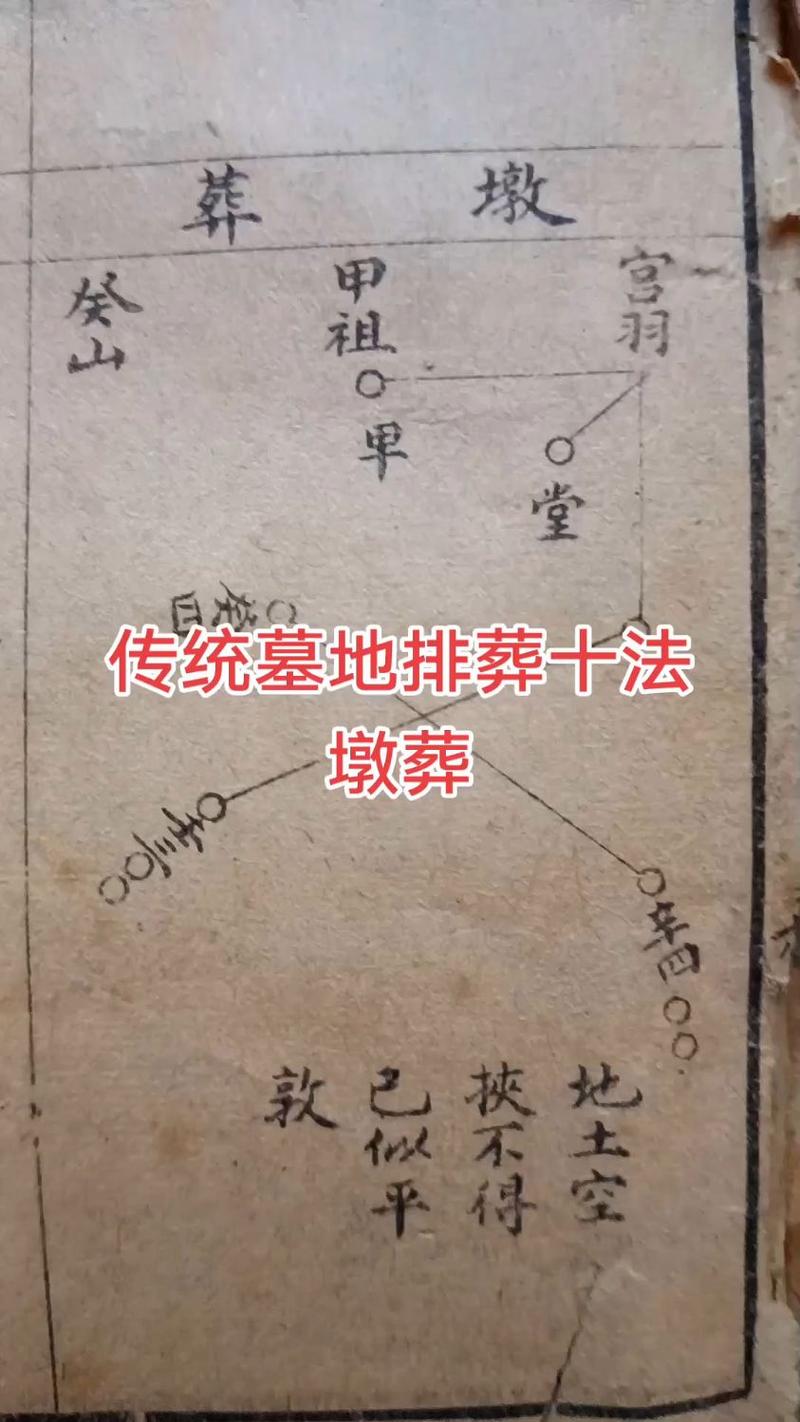 墩葬
宫羽
甲祖
癸山
甲
堂
传统墓地排葬十法
墩葬
地土空
挾不得
已似平
敦